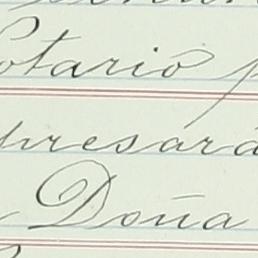 otario
presará
Doña